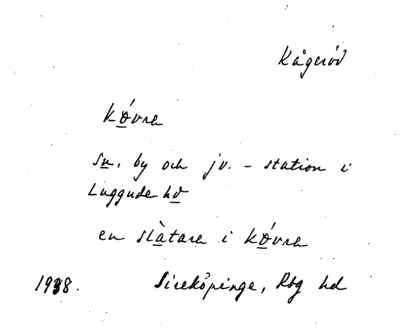 Kågeröd
kóvra
sn, by och jv. - station i
Luggude hd
en slàtara i kóvra
1938. Sireköpinge, Rbg hd